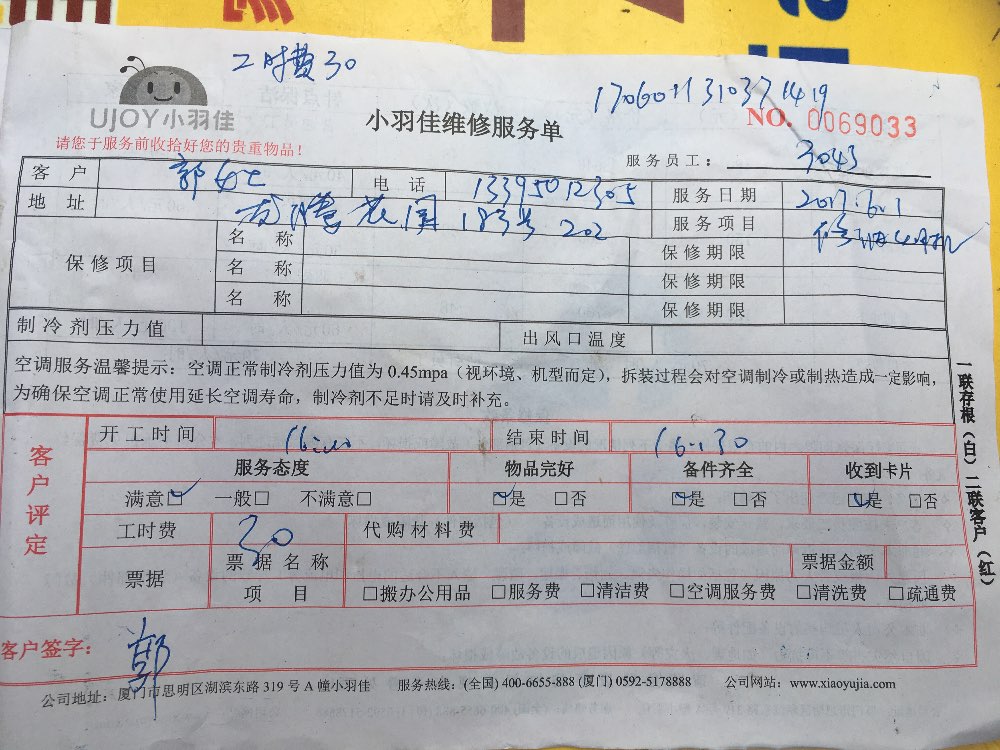 工时费30
17060113103714 19
UJOY小羽佳
小羽佳维修服务单
NO. 0069033
请您于服务前收拾好您的贵重物品！
服务员工： 3043
客户 郭女士 电话 13395012305 服务日期 2017.6.1
地址 龙腾花园 183号 202 服务项目
保修项目
名称 保修期限
名称 保修期限
名称 保修期限
制冷剂压力值 出风口温度
空调服务温馨提示：空调正常制冷剂压力值为 0.45mpa（视环境、机型而定），拆装过程会对空调制冷或制热造成一定影响，
为确保空调正常使用延长空调寿命，制冷剂不足时请及时补充。
一联存根（白）二联客户（红）
客户评定
开工时间 16:00 结束时间 16:30
服务态度 物品完好 备件齐全 收到卡片
满意☑ 一般□ 不满意□ ☑是 □否 ☑是 □否 ☑是 □否
工时费 30 代购材料费
票据 票据名称 票据金额
项目 □搬办公用品 □服务费 □清洁费 □空调服务费 □清洗费 □疏通费
客户签字： 郭
公司地址：厦门市思明区湖滨东路 319 号 A 幢小羽佳 服务热线：(全国) 400-6655-888 (厦门) 0592-5178888 公司网站：www.xiaoyujia.com